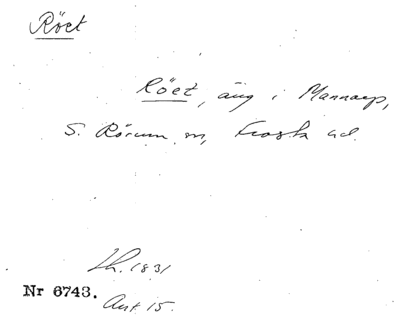 Röet
Röet, äng i Mannarp,
S. Rörum sn, Frosta hd.
Lh. 1831
Nr 6743.
Ant. 15.